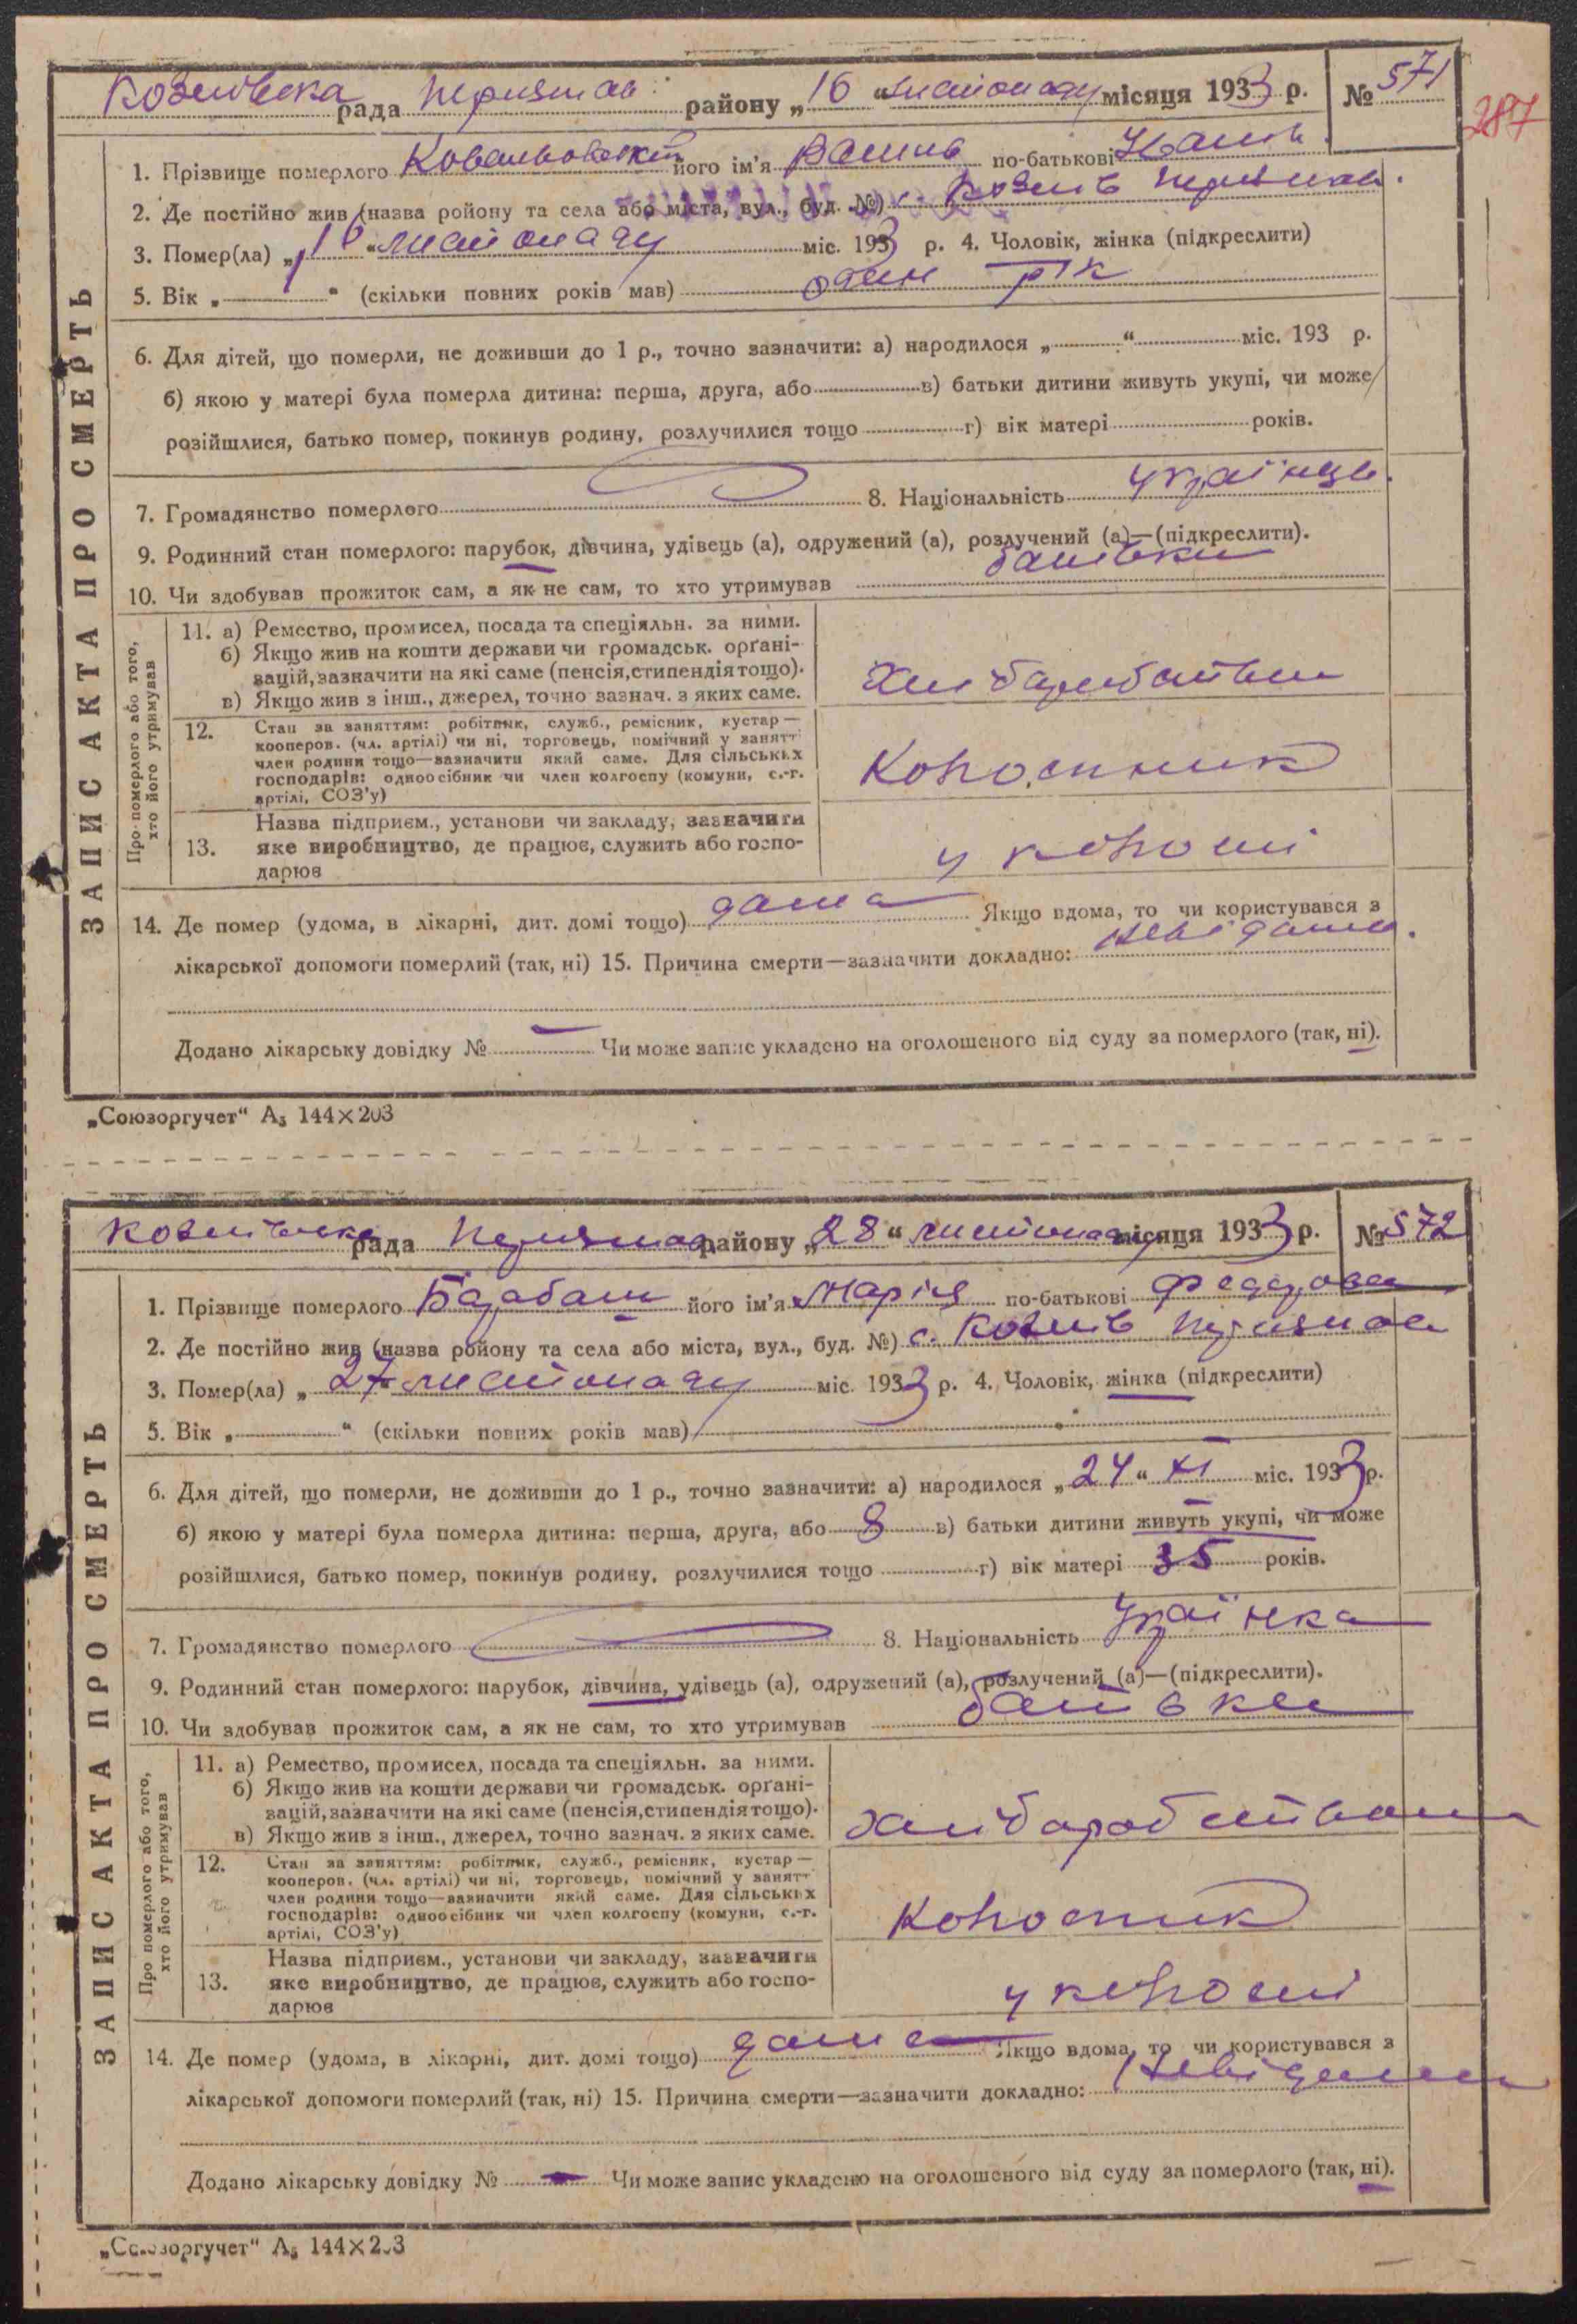 Козлівська рада Переяслав району „16“ листопаду місяця 1933 р. № 571
287
ЗАПИС АКТА ПРО СМЕРТЬ
1. Прізвище померлого Ковальовський його ім'я Василь по-батькові Іванів
2. Де постійно жив (назва ройону та села або міста, вул., буд. №) с. Козлів Переяслав.
3. Помер(ла) „16“ листопаду міс. 1933 р. 4. Чоловік, жінка (підкреслити)
5. Вік „ “ (скільки повних років мав) один рік
6. Для дітей, що померли, не доживши до 1 р., точно зазначити: а) народилося „ “ міс. 193 р.
б) якою у матері була померла дитина: перша, друга, або в) батьки дитини живуть укупі, чи може
розійшлися, батько помер, покинув родину, розлучилися тощо г) вік матері років.
7. Громадянство померлого 8. Національність українць.
9. Родинний стан померлого: парубок, дівчина, удівець (а), одружений (а), розлучений (а)—(підкреслити).
10. Чи здобував прожиток сам, а як не сам, то хто утримував батьки
Про померлого або того, хто його утримував
11. а) Ремество, промисел, посада та спеціяльн. за ними.
б) Якщо жив на кошти держави чи громадськ. орґані-
зацій, зазначити на які саме (пенсія, стипендія тощо).
в) Якщо жив з інш., джерел, точно зазнач. з яких саме.
12. Стан за заняттям: робітник, служб., ремісник, кустар—
кооперов. (чл. артілі) чи ні, торговець, помічний у занятт
член родини тощо—зазначити який саме. Для сільських
господарів: одноосібник чи член колгоспу (комуни, с.-г.
артілі, СОЗ'у)
13. Назва підприєм., установи чи закладу, зазначити
яке виробництво, де працює, служить або госпо-
дарює
14. Де помер (удома, в лікарні, дит. домі тощо) дома Якщо вдома, то чи користувався з
лікарської допомоги померлий (так, ні) 15. Причина смерти—зазначити докладно: невідома.
Додано лікарську довідку № — Чи може запис укладено на оголошеного від суду за померлого (так, ні).
„Союзоргучет“ А₅ 144×203
Козлівська рада Переяслав району „28“ листопаду місяця 1933 р. № 572
ЗАПИС АКТА ПРО СМЕРТЬ
1. Прізвище померлого Барабаш його ім'я Марія по-батькові Федорова
2. Де постійно жив (назва ройону та села або міста, вул., буд. №) с. Козлів Переяслав
3. Помер(ла) „27“ листопаду міс. 1933 р. 4. Чоловік, жінка (підкреслити)
5. Вік „ “ (скільки повних років мав)
6. Для дітей, що померли, не доживши до 1 р., точно зазначити: а) народилося „24“ XI міс. 1933 р.
б) якою у матері була померла дитина: перша, друга, або 8 в) батьки дитини живуть укупі, чи може
розійшлися, батько помер, покинув родину, розлучилися тощо г) вік матері 35 років.
7. Громадянство померлого 8. Національність Українка
9. Родинний стан померлого: парубок, дівчина, удівець (а), одружений (а), розлучений (а)—(підкреслити).
10. Чи здобував прожиток сам, а як не сам, то хто утримував батьки
Про померлого або того, хто його утримував
11. а) Ремество, промисел, посада та спеціяльн. за ними.
б) Якщо жив на кошти держави чи громадськ. орґані-
зацій, зазначити на які саме (пенсія, стипендія тощо).
в) Якщо жив з інш., джерел, точно зазнач. з яких саме.
12. Стан за заняттям: робітник, служб., ремісник, кустар—
кооперов. (чл. артілі) чи ні, торговець, помічний у занятт
член родини тощо—зазначити який саме. Для сільських
господарів: одноосібник чи член колгоспу (комуни, с.-г.
артілі, СОЗ'у)
13. Назва підприєм., установи чи закладу, зазначити
яке виробництво, де працює, служить або госпо-
дарює
14. Де помер (удома, в лікарні, дит. домі тощо) дома Якщо вдома, то чи користувався з
лікарської допомоги померлий (так, ні) 15. Причина смерти—зазначити докладно: невідома
Додано лікарську довідку № — Чи може запис укладено на оголошеного від суду за померлого (так, ні).
„Союзоргучет“ А₅ 144×203